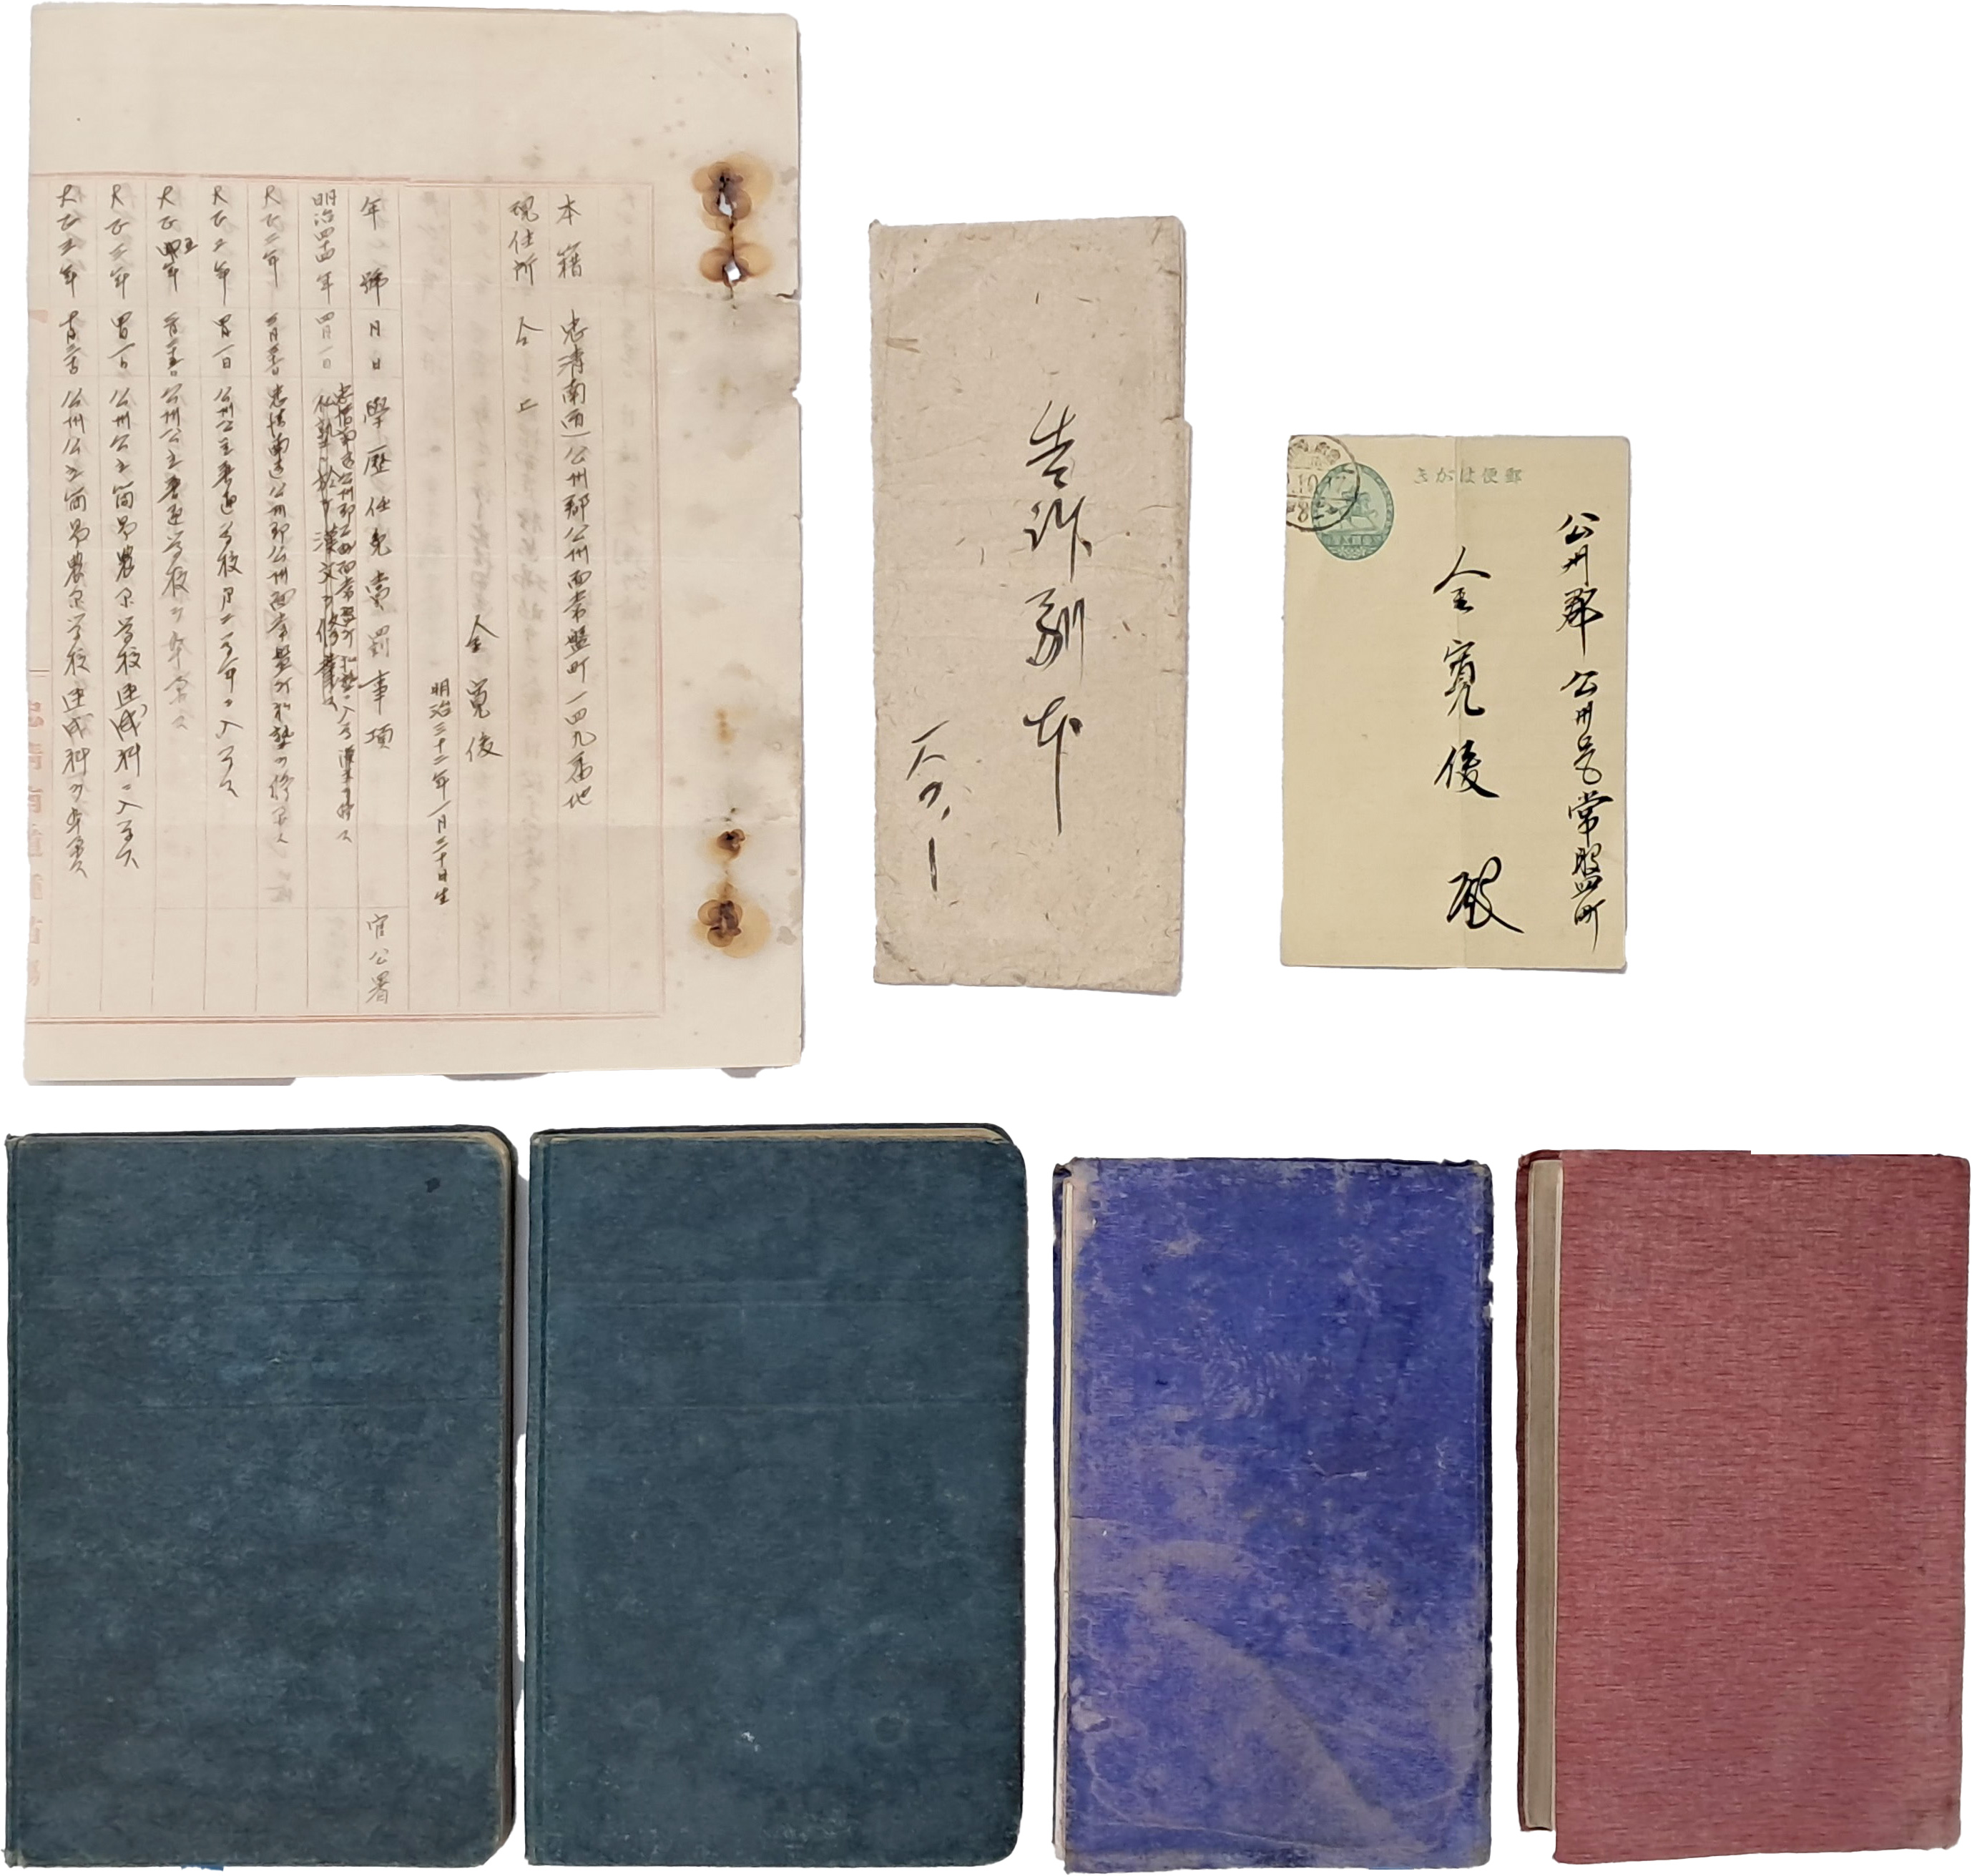 本籍 忠清南道公州郡公州面常盤町一四九番地
現住所 仝上
金寬俊
明治三十二年一月二十日生
年號月日 學歷任免賞罰事項 官公署
明治四四年 四月一日 忠淸南道公州郡公州面常盤町私塾ニ入リ漢文ヲ修ム
大正二年 三月 忠淸南道公州郡公州面常盤町私塾ヲ修了ス
大正二年 四月一日 公州公立普通学校第二学年ニ入学ス
大正五年 公州公立普通学校ヲ卒業ス
大正五年 四月一日 公州公立簡易農業学校速成科ニ入学ス
大正五年 公州公立簡易農業学校速成科ヲ卒業ス
告訴副本
郵便はがき
公州郡公州邑常盤町
金寬俊 殿